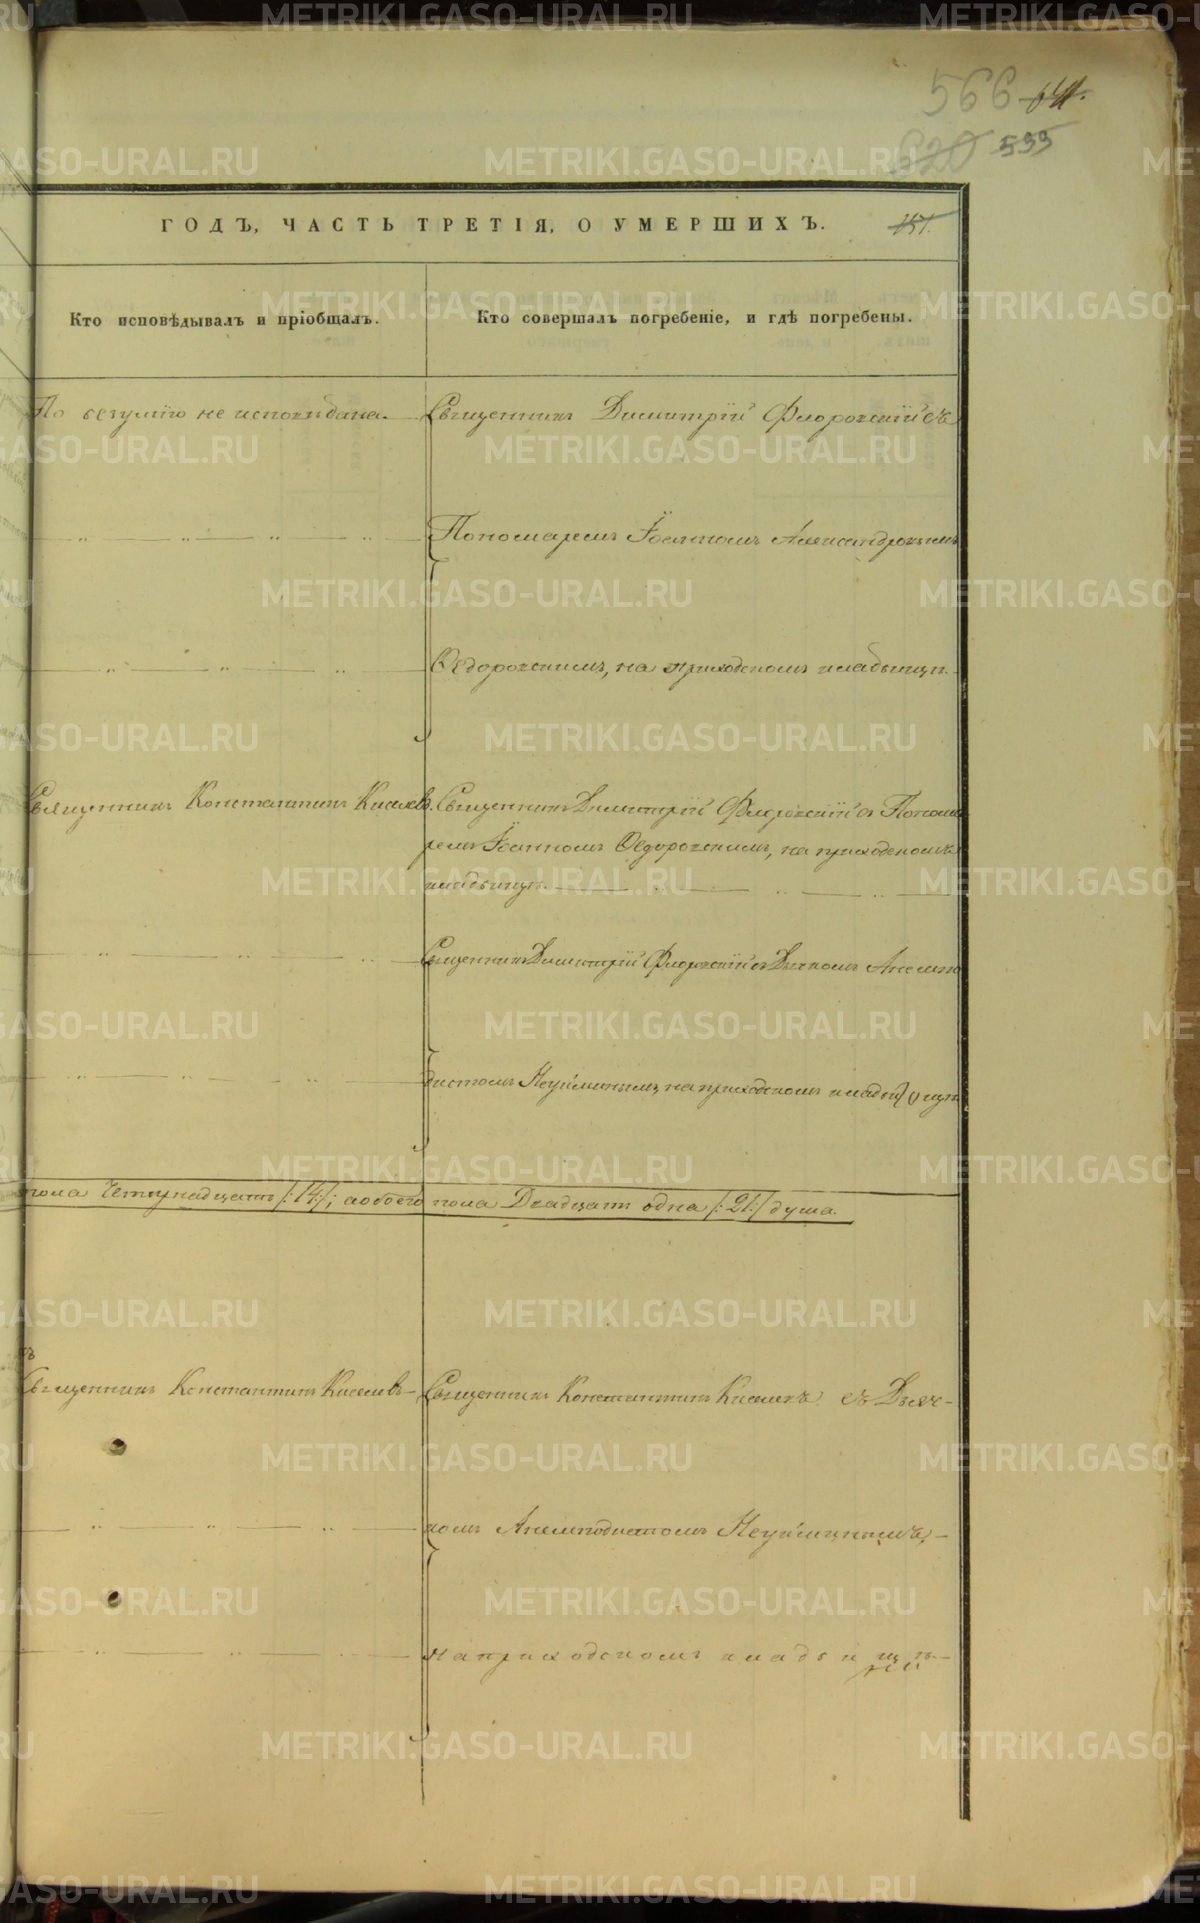 566
620 599
ГОДЪ, ЧАСТЬ ТРЕТІЯ, О УМЕРШИХЪ. 157.
Кто исповѣдывалъ и пріобщалъ. Кто совершалъ погребеніе, и гдѣ погребены.
По безумію не исповѣдана. Священникъ Димитрій Флоровскій съ
Пономаремъ Іоанномъ Александровымъ
Ѳедоровскимъ, на приходскомъ кладбищѣ.
Священникъ Константинъ Киселевъ. Священникъ Димитрій Флоровскій съ Понома
ремъ Іоанномъ Ѳедоровскимъ, на приходскомъ
кладбищѣ.
Священникъ Димитрій Флоровскій съ Дьячкомъ Анемпо
дистомъ Неуйминымъ, на приходскомъ кладбищѣ
пола Четырнадцать /:14:/; а обоего пола Двадцать одна /:21:/ душа.
Священникъ Константинъ Киселевъ Священникъ Константинъ Киселевъ съ Дьяч-
комъ Анемподистомъ Неуйминымъ,
на приходскомъ кладбищѣ
METRIKI.GASO-URAL.RU